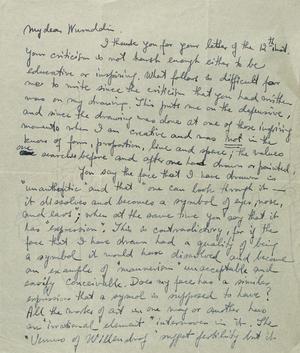 My dear Wunuddin,
I thank you for your letter of the 12th inst.
Your criticism is not harsh enough either to be
educative or inspiring. What follows is difficult for
me to write since the criticism that you had written
was on my drawing. This puts me on the defensive,
and since the drawing was done at one of those inspiring
moments when I am creative and was not in the
of form, proportion, line and space; the values
one searches before and after one has drawn or painted.
You say the face that I have drawn is
"unauthentic" and that "one can look through it —
it dissolves and becomes a symbol of eyes, nose,
and ears"; when at the same time you say that it
has "expression". This is contradictory, for if the
face that I have drawn had a quality of being
a symbol it would have dissolved and become
an example of "mannerism" unacceptable and
easily conceivable. Does my face has a similar
expression that a symbol is supposed to have?
All the works of art in one way or another has
an "irrational element" interwoven in it. The
"Venus of Willendrof" suggest fertility but it